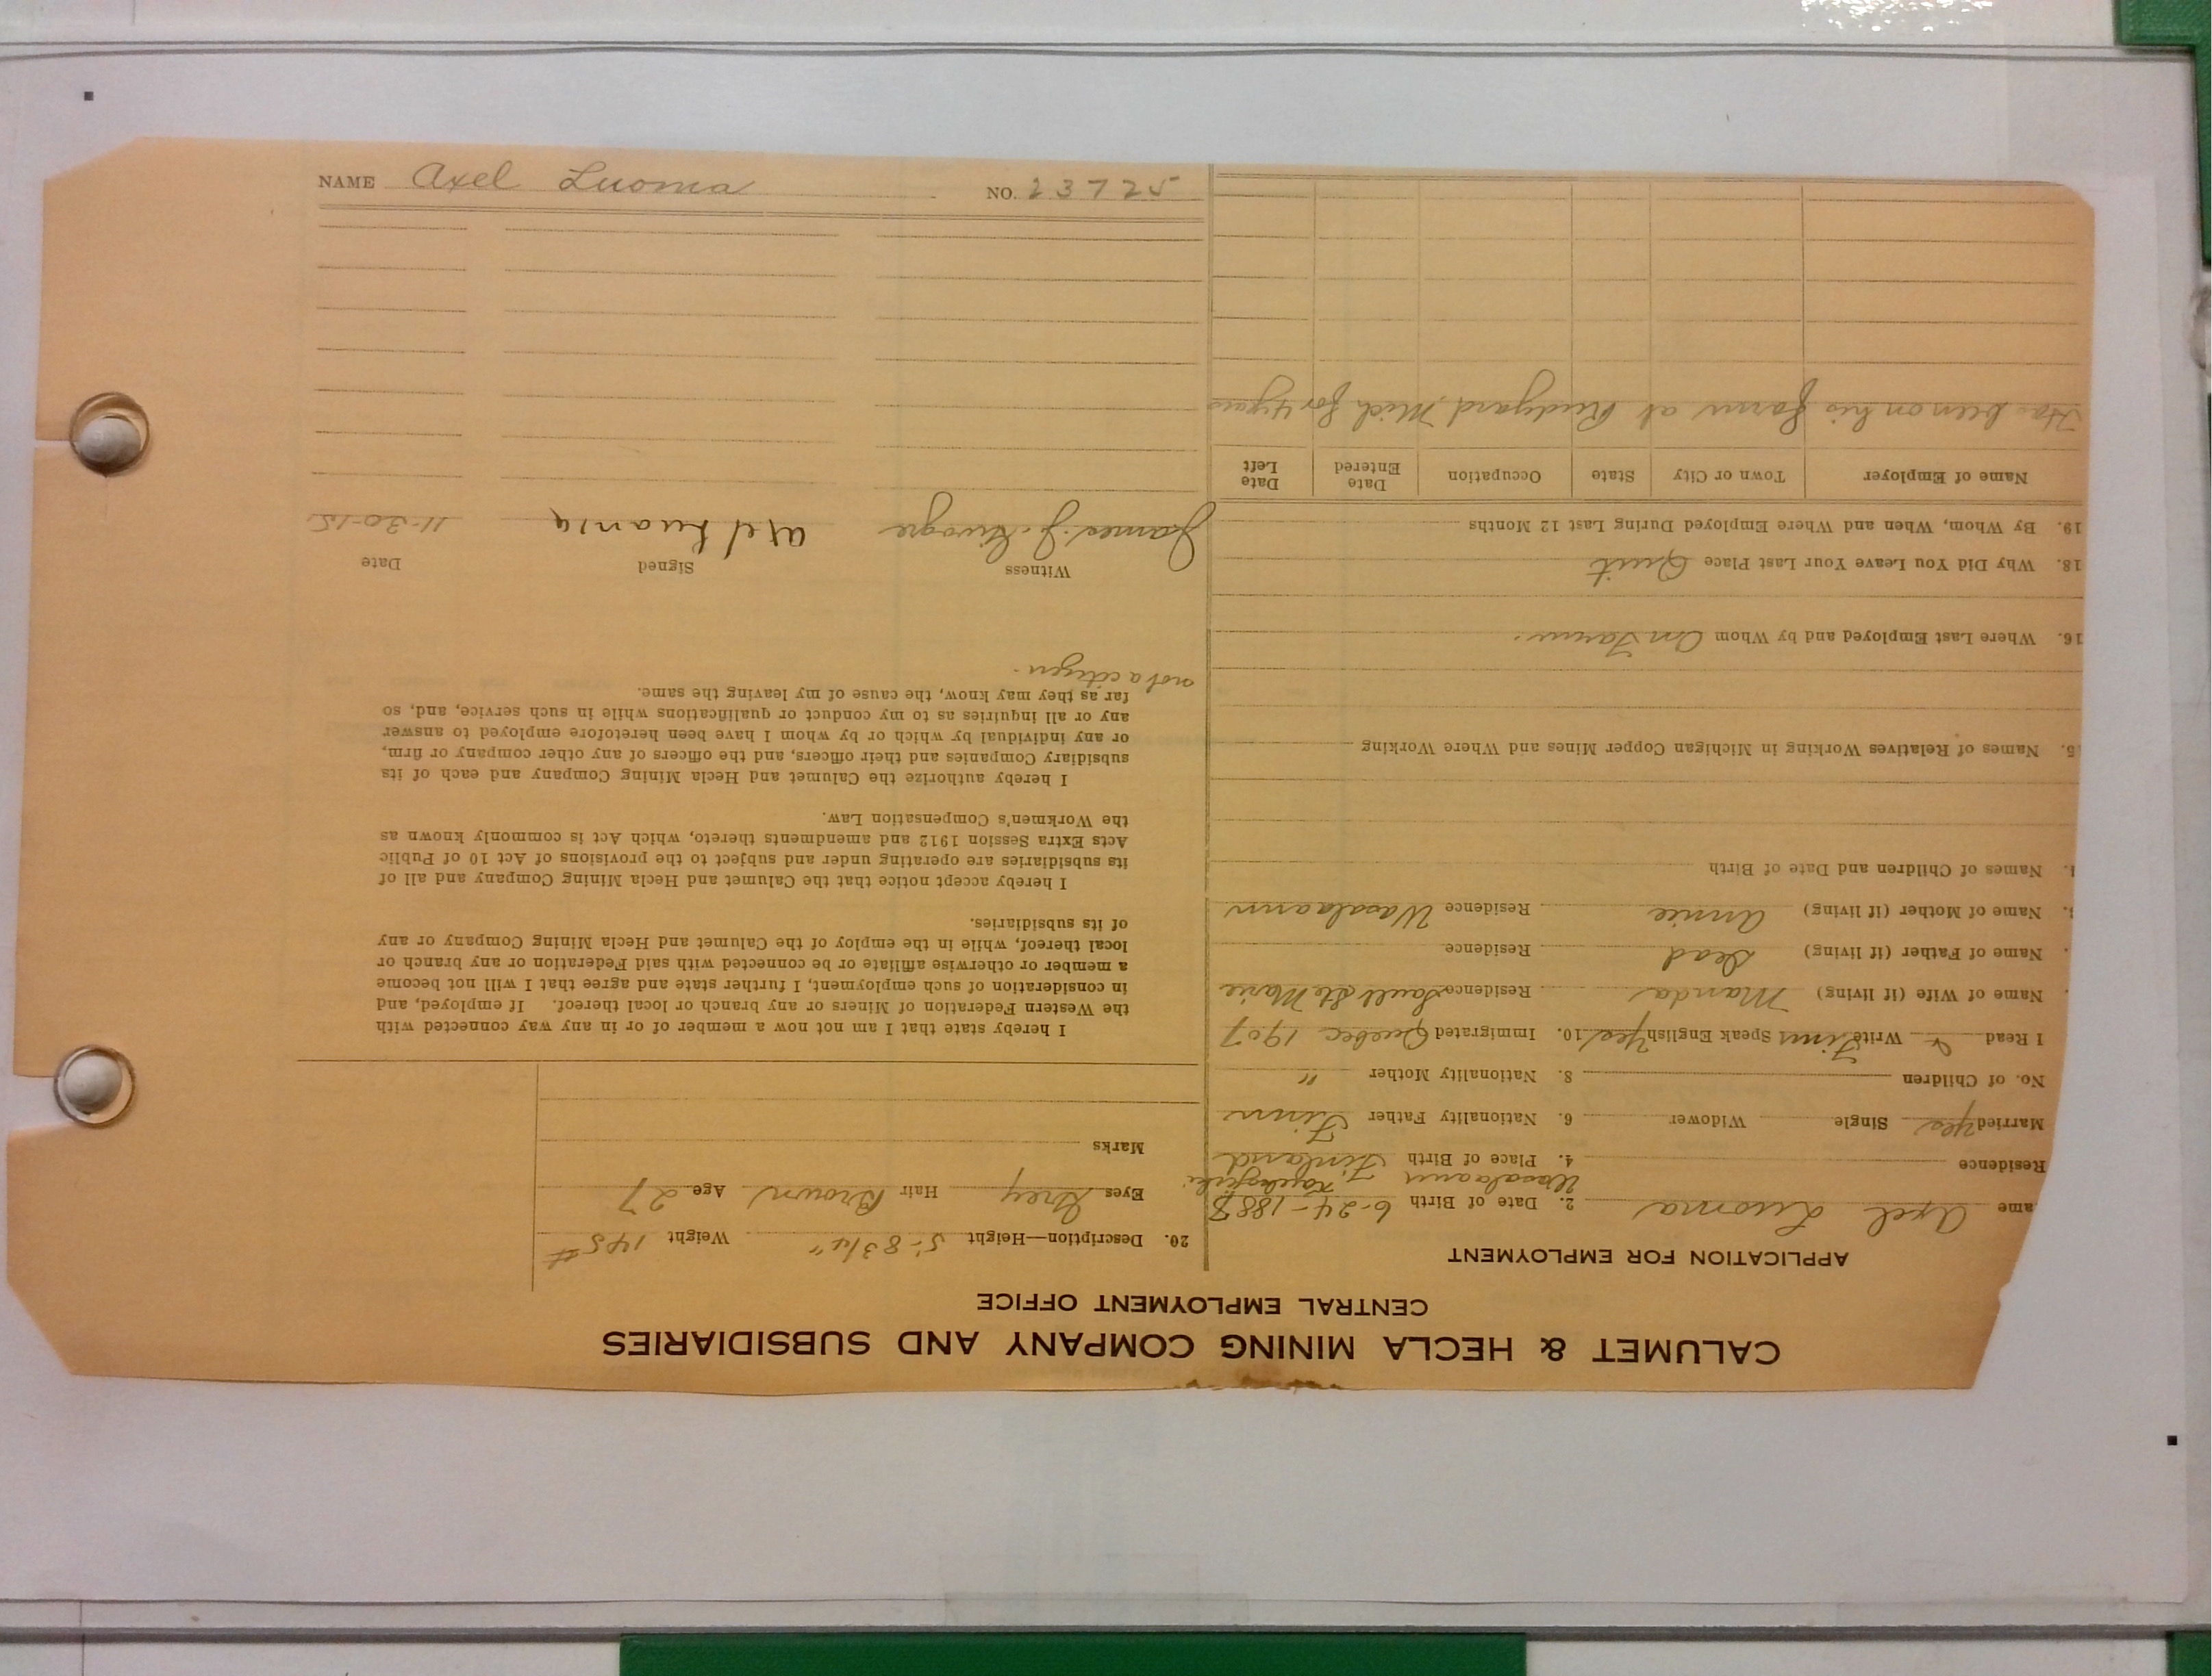 CALUMET & HECLA MINING COMPANY AND SUBSIDIARIES
CENTRAL EMPLOYMENT OFFICE
APPLICATION FOR EMPLOYMENT
ame Axel Luoma 2. Date of Birth 6-24-1888
Wasalaann
Residence 4. Place of Birth Finland
Married Yes Single Widower 6. Nationality Father Finn
No. of Children 8. Nationality Mother "
I Read & Write Finn Speak English Yes 10. Immigrated Quebec 1907
Name of Wife (if living) Manda Residence Sault Ste Marie
Name of Father (if living) Dead Residence
Name of Mother (if living) Annie Residence Wasalaann
Names of Children and Date of Birth
5. Names of Relatives Working in Michigan Copper Mines and Where Working
16. Where Last Employed and by Whom On Farm.
18. Why Did You Leave Your Last Place Quit
19. By Whom, When and Where Employed During Last 12 Months
Name of Employer Town or City State Occupation Date Entered Date Left
Has been on his farm at Rudyard Mich for 4 years
20. Description—Height 5-8 3/4" Weight 145#
Eyes Grey Hair Brown Age 27
Marks
I hereby state that I am not now a member of or in any way connected with
the Western Federation of Miners or any branch or local thereof. If employed, and
in consideration of such employment, I further state and agree that I will not become
a member or otherwise affiliate or be connected with said Federation or any branch or
local thereof, while in the employ of the Calumet and Hecla Mining Company or any
of its subsidiaries.
I hereby accept notice that the Calumet and Hecla Mining Company and all of
its subsidiaries are operating under and subject to the provisions of Act 10 of Public
Acts Extra Session 1912 and amendments thereto, which Act is commonly known as
the Workmen's Compensation Law.
I hereby authorize the Calumet and Hecla Mining Company and each of its
subsidiary Companies and their officers, and the officers of any other company or firm,
or any individual by which or by whom I have been heretofore employed to answer
any or all inquiries as to my conduct or qualifications while in such service, and, so
far as they may know, the cause of my leaving the same.
not a citizen.
Witness Signed Date
James J. Axel Luoma 11-30-15
NAME Axel Luoma NO. 23725